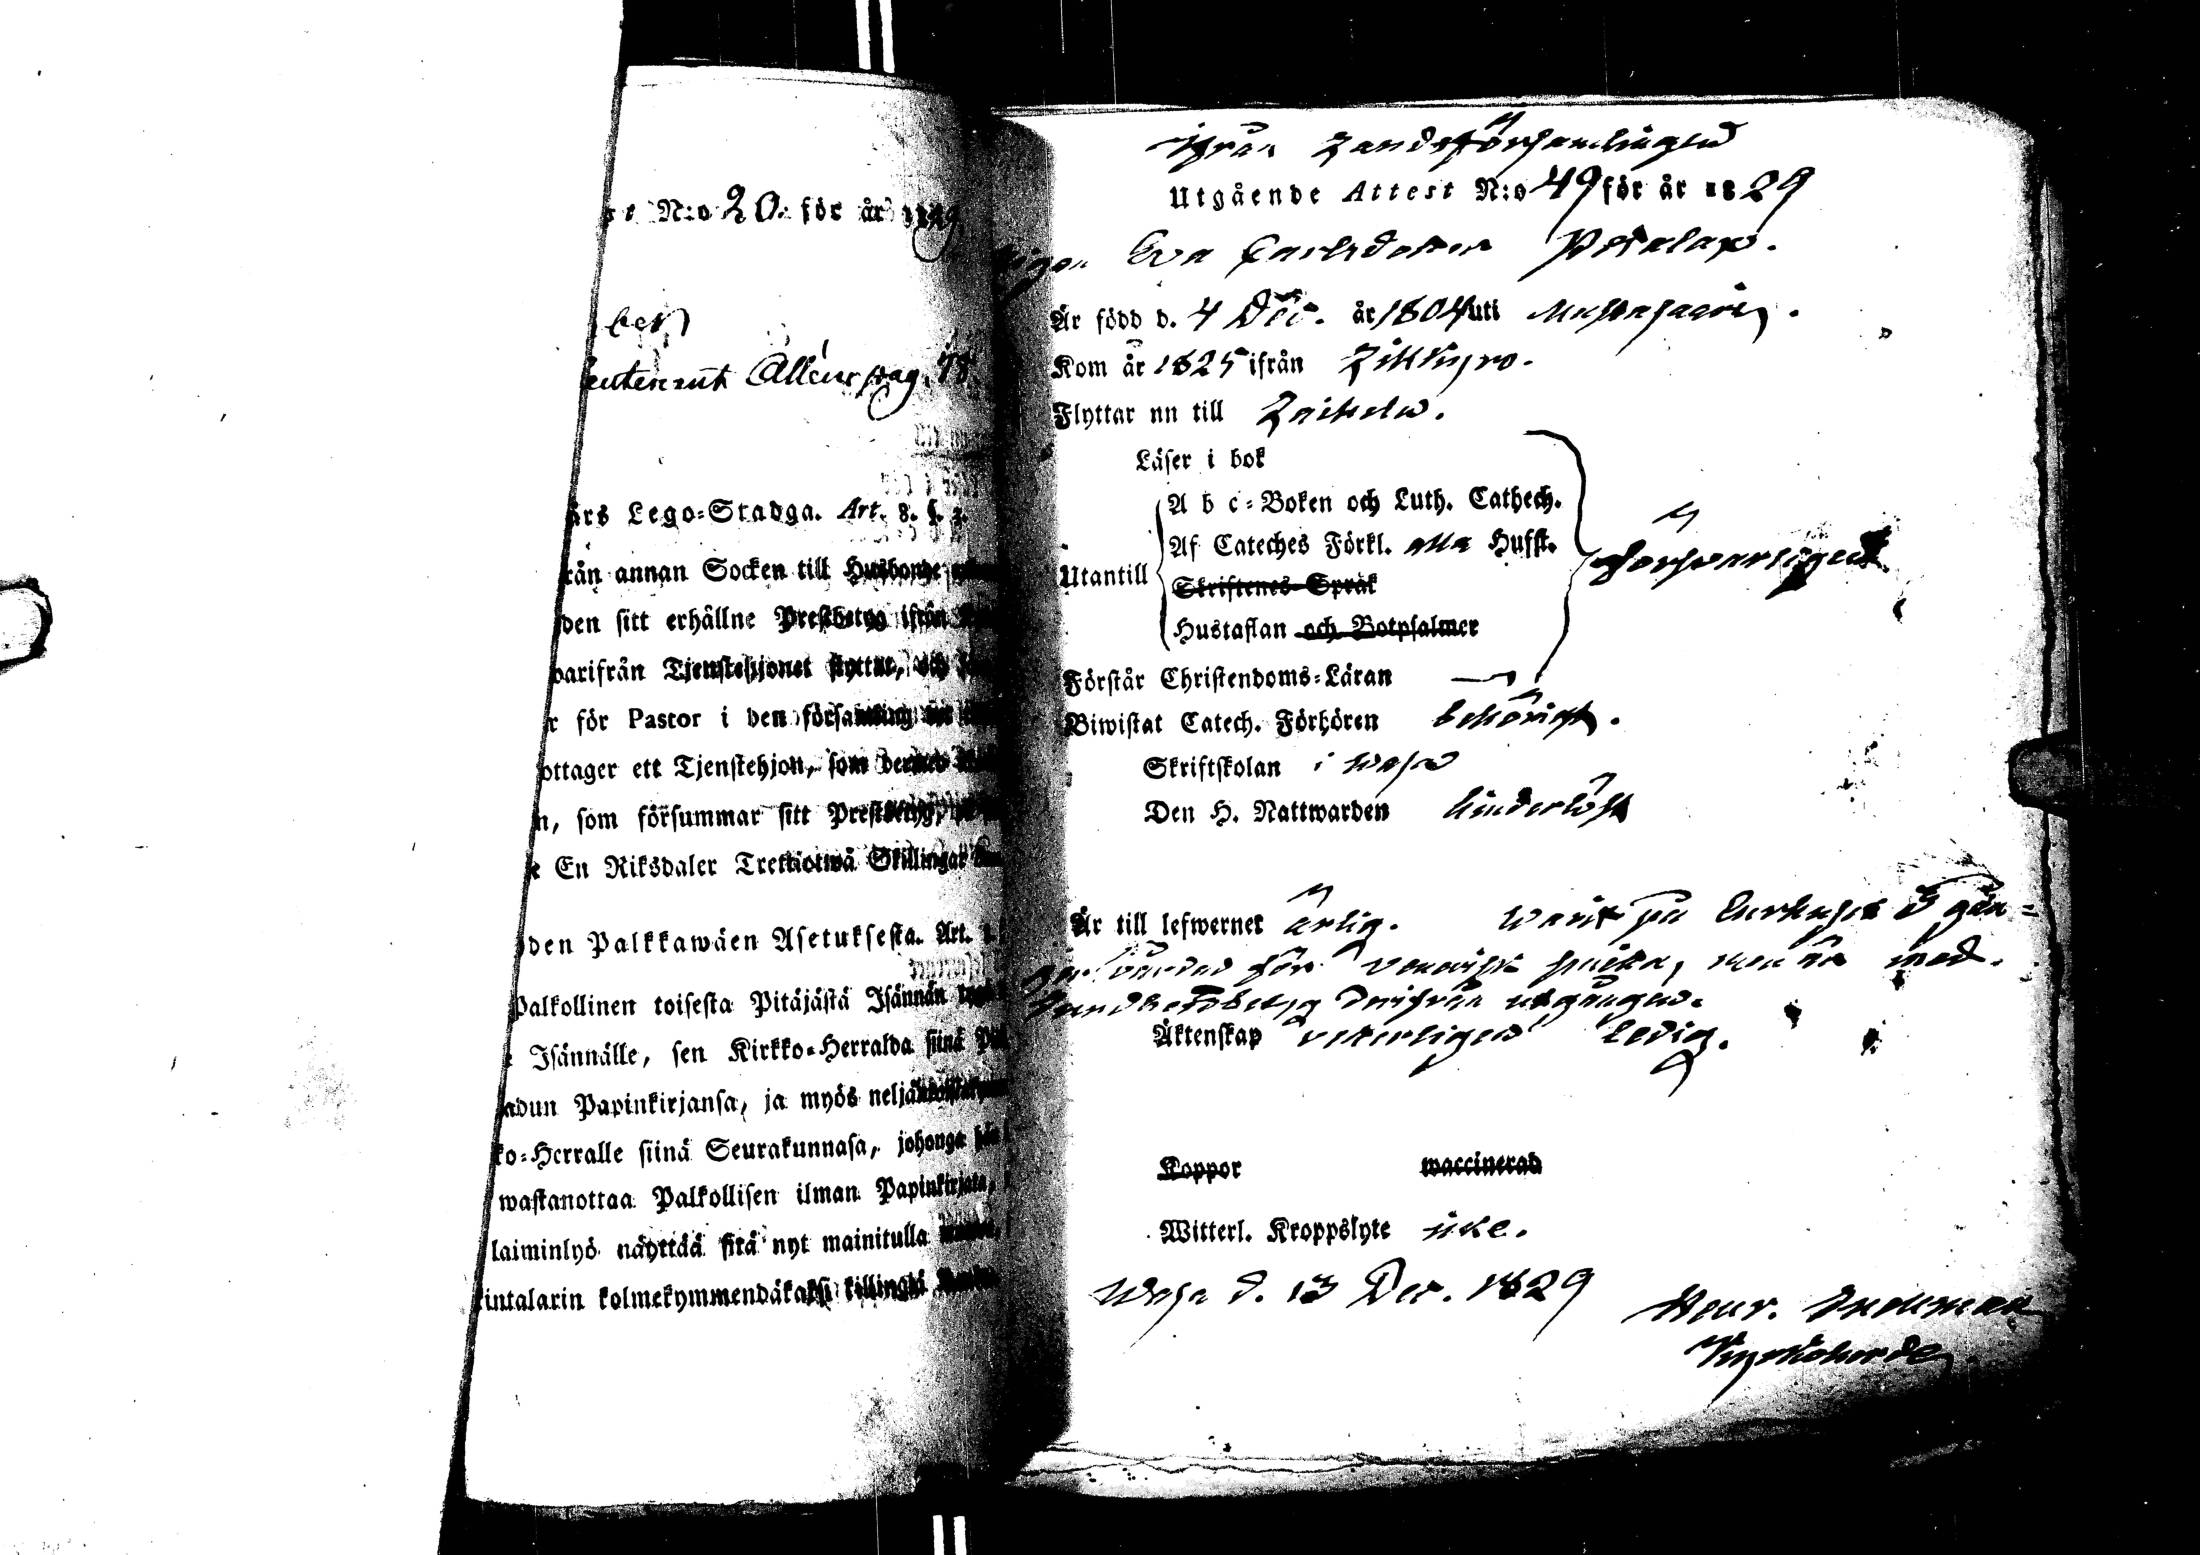 N:o 20. för år 1829
ben
Lieutenant Alléns pag. 78.
års Lego-Stadga. Art. 8. §. 3.
från annan Socken till Husbonde
den sitt erhållne Prestbetyg ifrån
varifrån Tjenstehjonet flyttat, och
r för Pastor i den församling
ottager ett Tjenstehjon, som dermed
n, som försummar sitt Prestbetyg,
En Riksdaler Trettiotwå Skillingar
den Palkkawäen Asetuksesta. Art.
Palkollinen toisesta Pitäjästä Isännän
Isännälle, sen Kirkko-Herralda siinä
adun Papinkirjansa, ja myös
ko-Herralle siinä Seurakunnasa, johonga hän
wastanottaa Palkollisen ilman Papinkirjata,
laiminlyö näyttää sitä nyt mainitulla
intalarin kolmekymmendäkaksi killingiä
ifrån Landsförsamlingen
Utgående Attest N:o 49 för år 1829
Pigan Eva Carlsdotter Petalax.
Är född d. 4 Dec. år 1804 uti Mustasaari.
Kom år 1825 ifrån Lillkyro.
Flyttar nu till Laihela.
Läser i bok
A b c-Boken och Luth. Cathech.
Af Cateches Förkl. alla Husst.
Utantill
försvarligen
Skriftenes Språk
Hustaflan och Botpsalmer
Förstår Christendoms-Läran
Biwistat Catech. Förhören behörigt.
Skriftskolan i Wasa
Den H. Nattwarden hinderlöst
Är till lefwernet ärlig. Warit på Curhuset 3 gån-
ger vårdad för venerisk smitta, men är med
sundhetsbetyg derifrån utgången.
Äktenskap veterligen ledig.
Koppor waccinerad
Witterl. Kroppslyte icke.
Wasa d. 13 Dec. 1829
Henr.